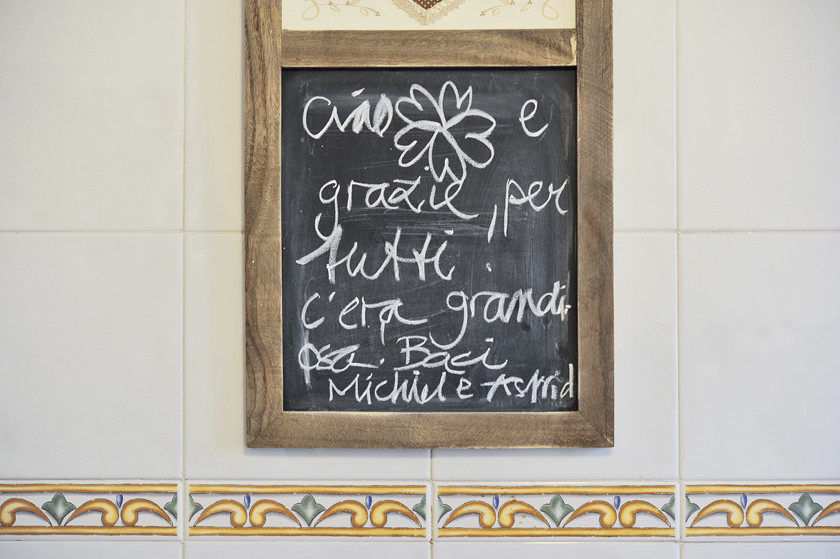 Ciao e
grazie, per
tutti.
c'era grandi-
osa. Baci
Michiel e Astrid